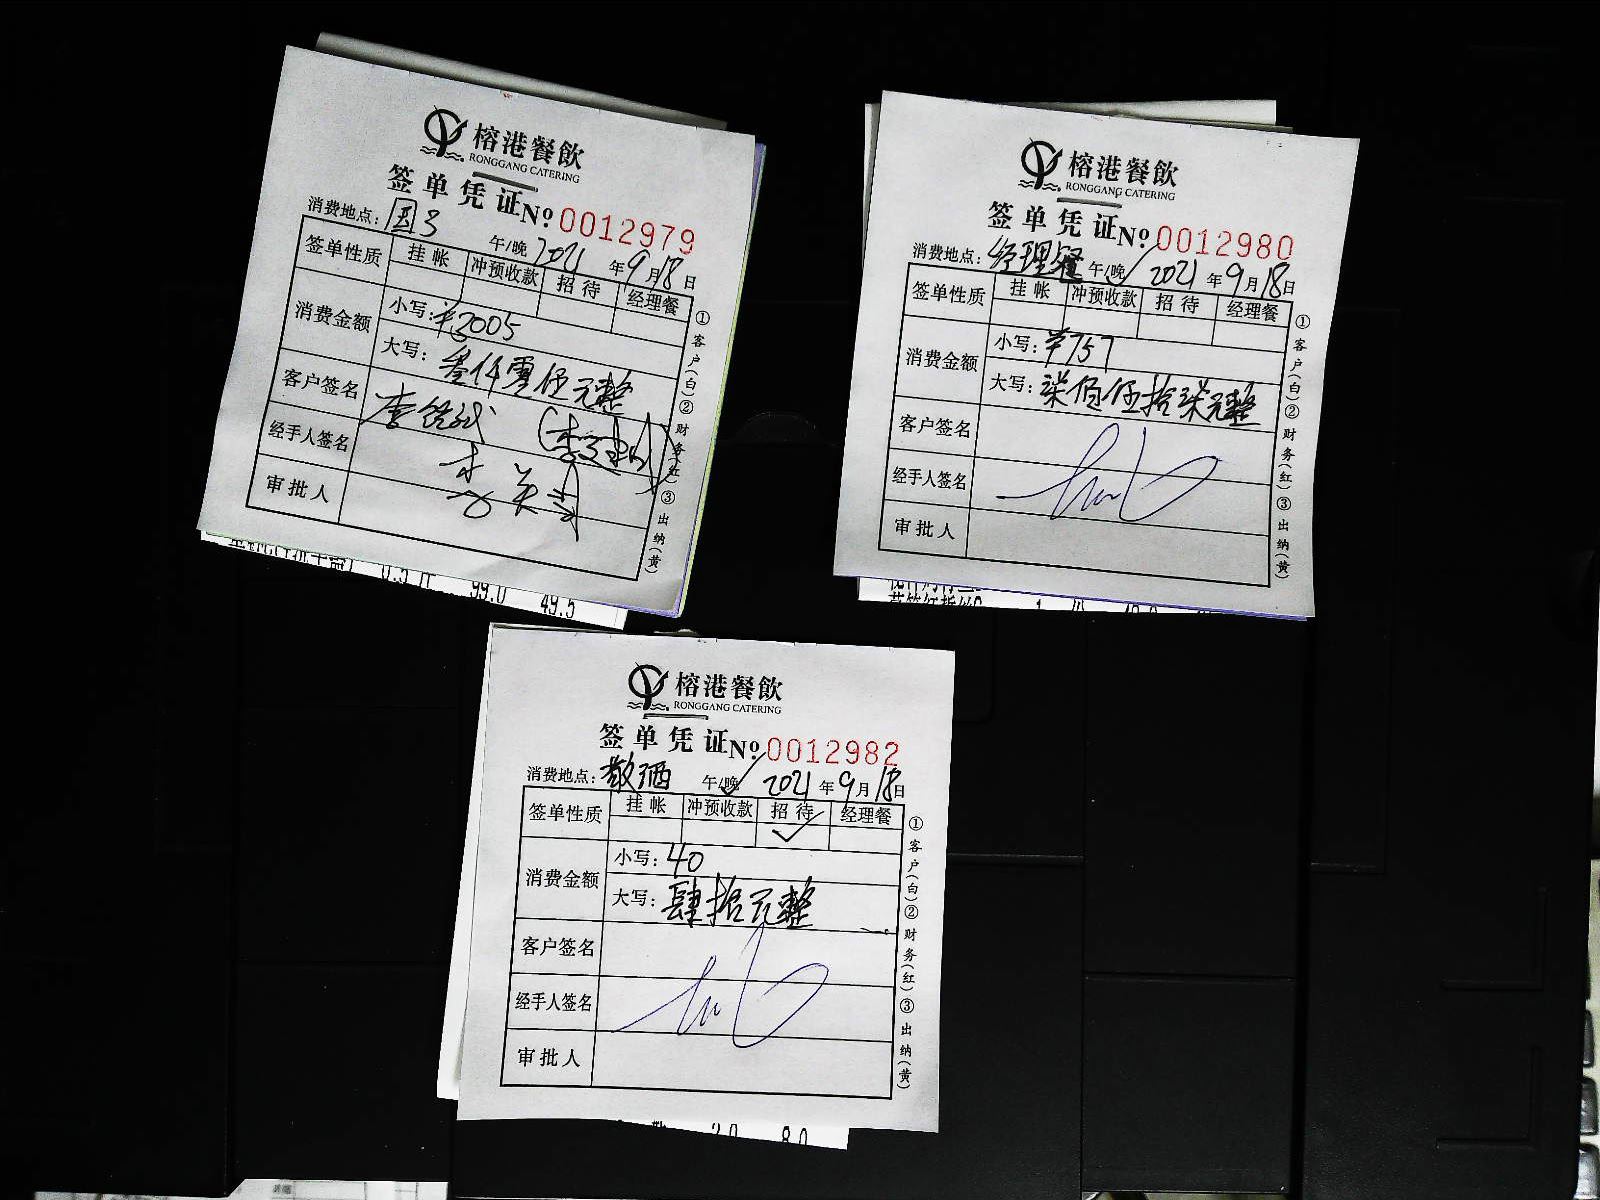 榕港餐飲
RONGGANG CATERING
签单凭证 Nº 0012979
消费地点: 国3 午/晚 2021年9月18日
签单性质 挂帐 冲预收款 招待 经理餐
消费金额 小写: ¥2005
大写: 仟零伍元整
客户签名
经手人签名
审批人
①客户(白)②财务(红)③出纳(黄)
99.0 49.5
榕港餐飲
RONGGANG CATERING
签单凭证 Nº 0012980
消费地点: 经理餐 午/晚 2021年9月18日
签单性质 挂帐 冲预收款 招待 经理餐
消费金额 小写: ¥757
大写: 柒佰伍拾柒元整
客户签名
经手人签名
审批人
①客户(白)②财务(红)③出纳(黄)
榕港餐飲
RONGGANG CATERING
签单凭证 Nº 0012982
消费地点: 敬酒 午/晚 2021年9月18日
签单性质 挂帐 冲预收款 招待 经理餐
✓
消费金额 小写: 40
大写: 肆拾元整
客户签名
经手人签名
审批人
①客户(白)②财务(红)③出纳(黄)